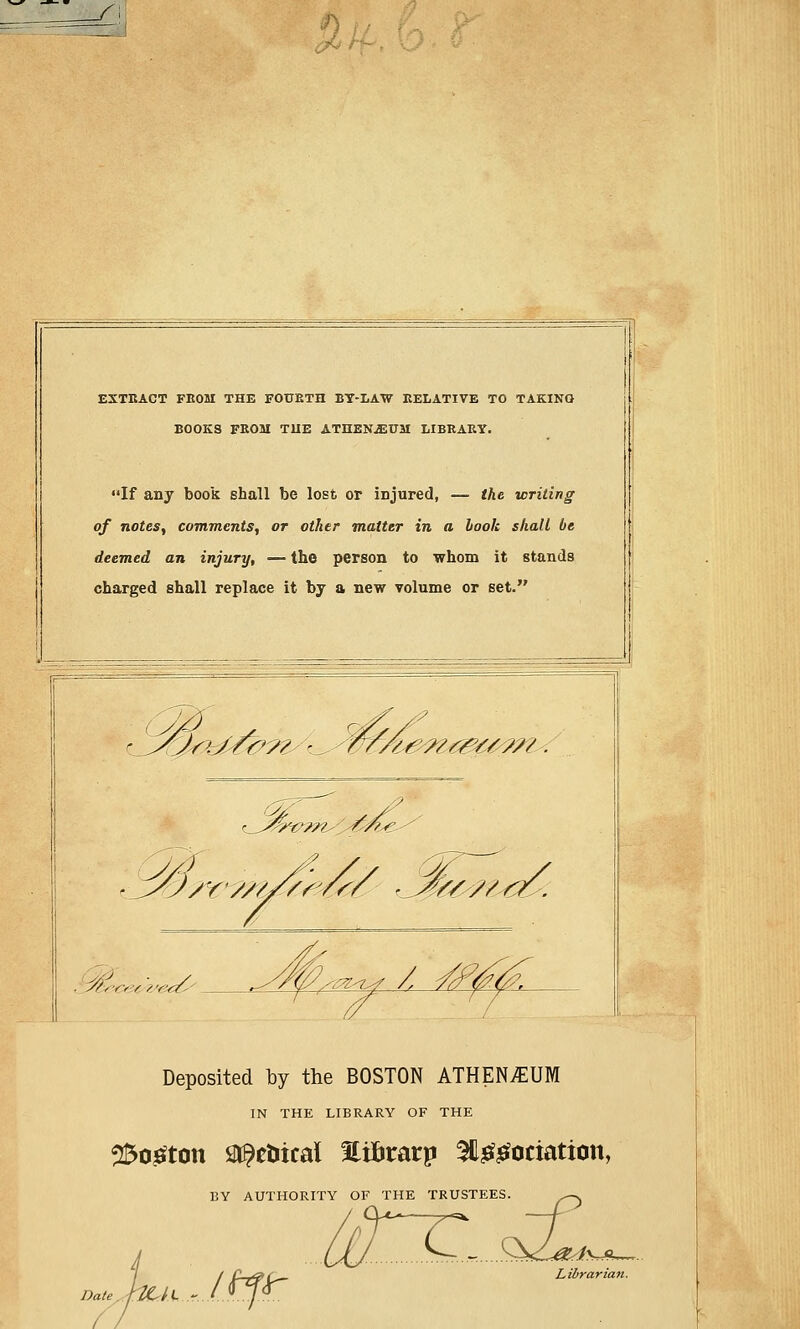 24.6.8
EXTRACT FROM THE FOURTH BY-LAW RELATIVE TO TAKING
BOOKS FROM THE ATHENÆUM LIBRARY.
"If any book shall be lost or injured, — the writing
of notes, comments, or other matter in a book shall be
deemed an injury, — the person to whom it stands
charged shall replace it by a new volume or set."
Boston Athenæum.
From the
Bromfield Fund.
Received May 1, 1866.
Deposited by the BOSTON ATHENÆUM
IN THE LIBRARY OF THE
Boston Medical Library Association,
BY AUTHORITY OF THE TRUSTEES.
W C. Lane
Librarian.
Date